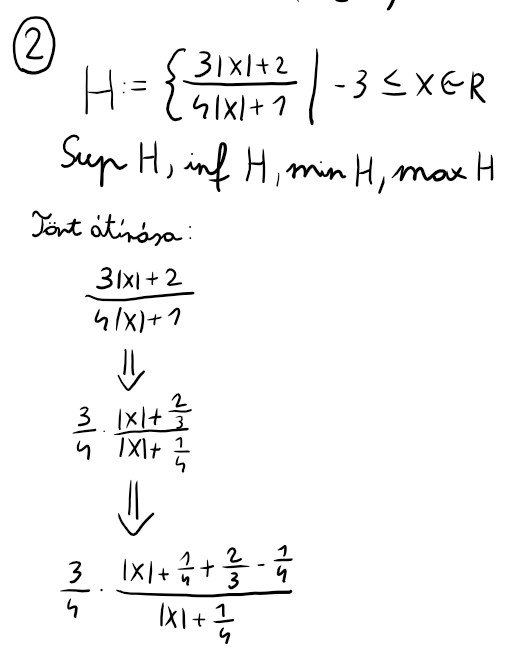 ②
H := { (3|x|+2)/(4|x|+1) | -3 ≤ x ∈ R
Sup H, inf H, min H, max H
Tört átírása:
(3|x|+2)/(4|x|+1)
⇓
3/4 · (|x|+2/3)/(|x|+1/4)
⇓
3/4 · (|x|+1/4+2/3-1/4)/(|x|+1/4)